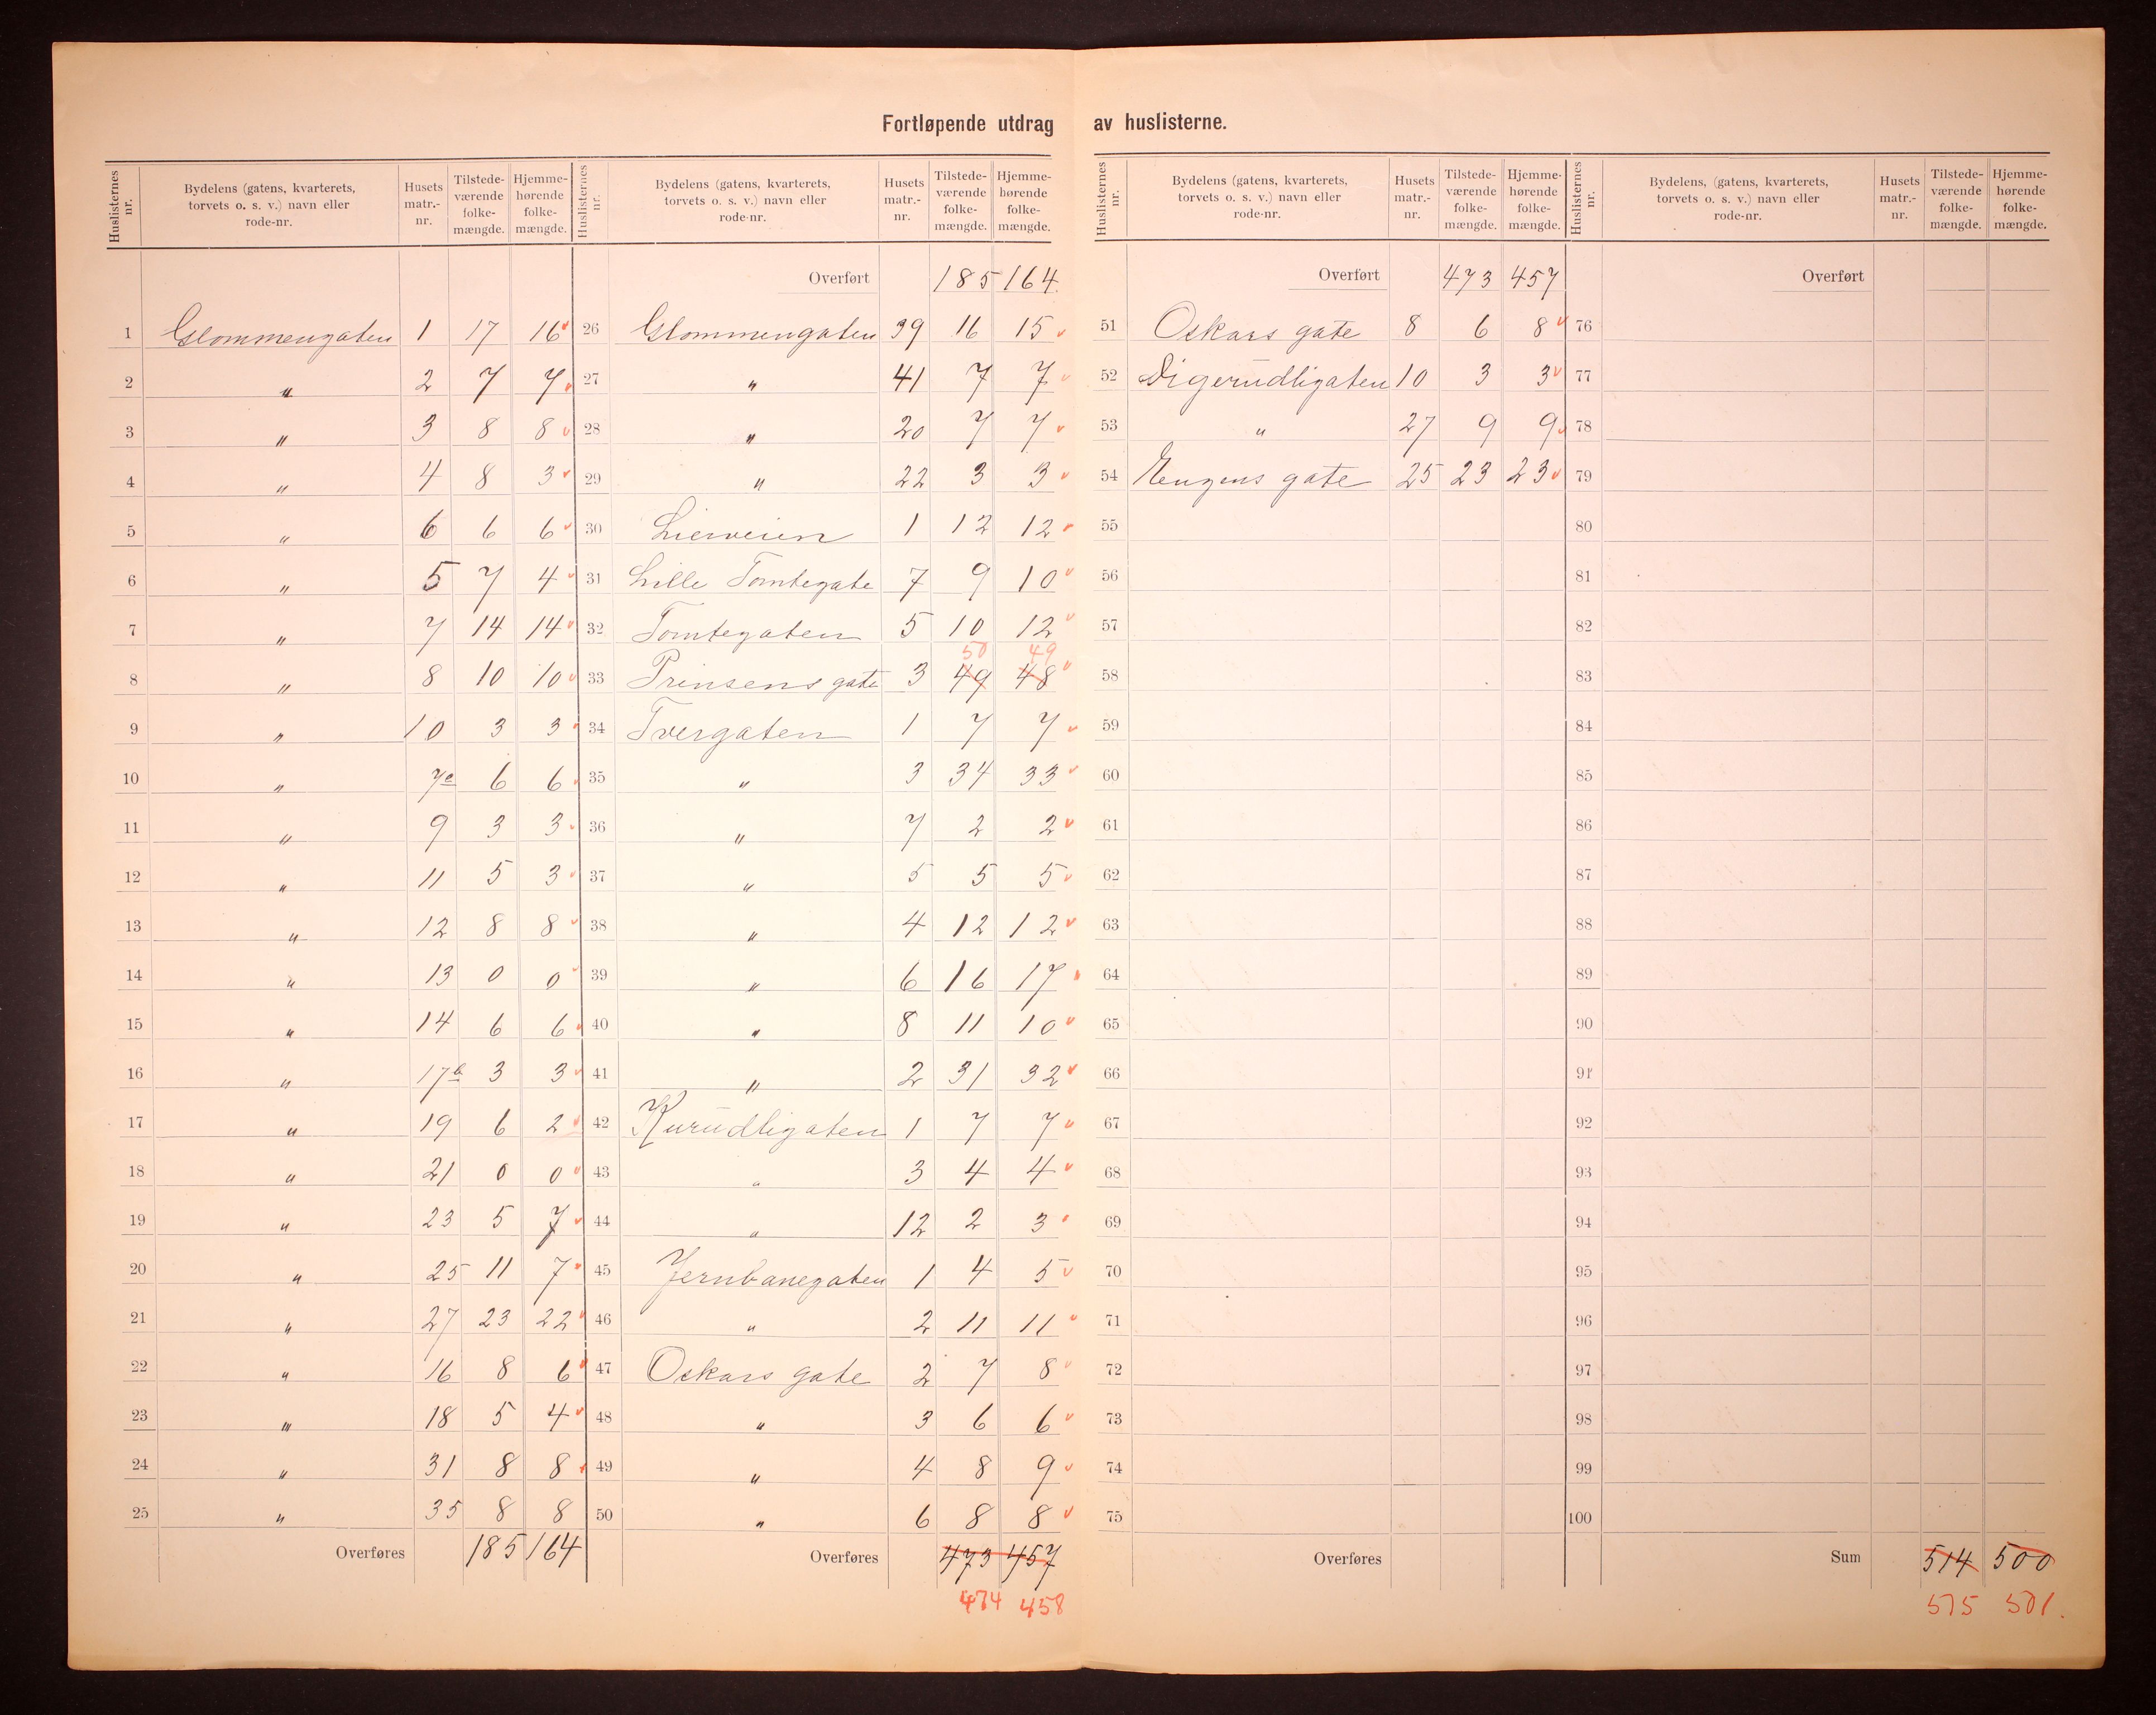 Fortløpende utdrag av huslisterne.
Huslisternes nr. | Bydelens (gatens, kvarterets, torvets o. s. v.) navn eller rode-nr. | Husets matr.-nr. | Tilstede-værende folke-mængde. | Hjemme-hørende folke-mængde.
1 Glommengaten 1 17 16
2 " 2 7 7
3 " 3 8 8
4 " 4 8 3
5 " 6 6 6
6 " 5 7 4
7 " 7 14 14
8 " 8 10 10
9 " 10 3 3
10 " 7c 6 6
11 " 9 3 3
12 " 11 5 3
13 " 12 8 8
14 " 13 0 0
15 " 14 6 6
16 " 17b 3 3
17 " 19 6 2
18 " 21 0 0
19 " 23 5 7
20 " 25 11 7
21 " 27 23 22
22 " 16 8 6
23 " 18 5 4
24 " 31 8 8
25 " 35 8 8
Overføres 185 164
Huslisternes nr. | Bydelens (gatens, kvarterets, torvets o. s. v.) navn eller rode-nr. | Husets matr.-nr. | Tilstede-værende folke-mængde. | Hjemme-hørende folke-mængde.
Overført 185 164.
26 Glommengaten 39 16 15
27 " 41 7 7
28 " 20 7 7
29 " 22 3 3
30 Lierveien 1 12 12
31 Lille Tomtegate 7 9 10
32 Tomtegaten 5 10 12
50 49
33 Prinsens gate 3 49 48
34 Tvergaten 1 7 7
35 " 3 34 33
36 " 7 2 2
37 " 5 5 5
38 " 4 12 12
39 " 6 16 17
40 " 8 11 10
41 " 2 31 32
42 Kurudligaten 1 7 7
43 " 3 4 4
44 " 12 2 3
45 Jernbanegaten 1 4 5
46 " 2 11 11
47 Oskars gate 2 7 8
48 " 3 6 6
49 " 4 8 9
50 " 6 8 8
Overføres 473 457
474 458
Huslisternes nr. | Bydelens (gatens, kvarterets, torvets o. s. v.) navn eller rode-nr. | Husets matr.-nr. | Tilstede-værende folke-mængde. | Hjemme-hørende folke-mængde.
Overført 473 457
51 Oskars gate 8 6 8
52 Digerudligaten 10 3 3
53 " 27 9 9
54 Eugens gate 25 23 23
55
56
57
58
59
60
61
62
63
64
65
66
67
68
69
70
71
72
73
74
75
Overføres
Huslisternes nr. | Bydelens, (gatens, kvarterets, torvets o. s. v.) navn eller rode-nr. | Husets matr.-nr. | Tilstede-værende folke-mængde. | Hjemme-hørende folke-mængde.
Overført
76
77
78
79
80
81
82
83
84
85
86
87
88
89
90
91
92
93
94
95
96
97
98
99
100
Sum 514 500
515 501.